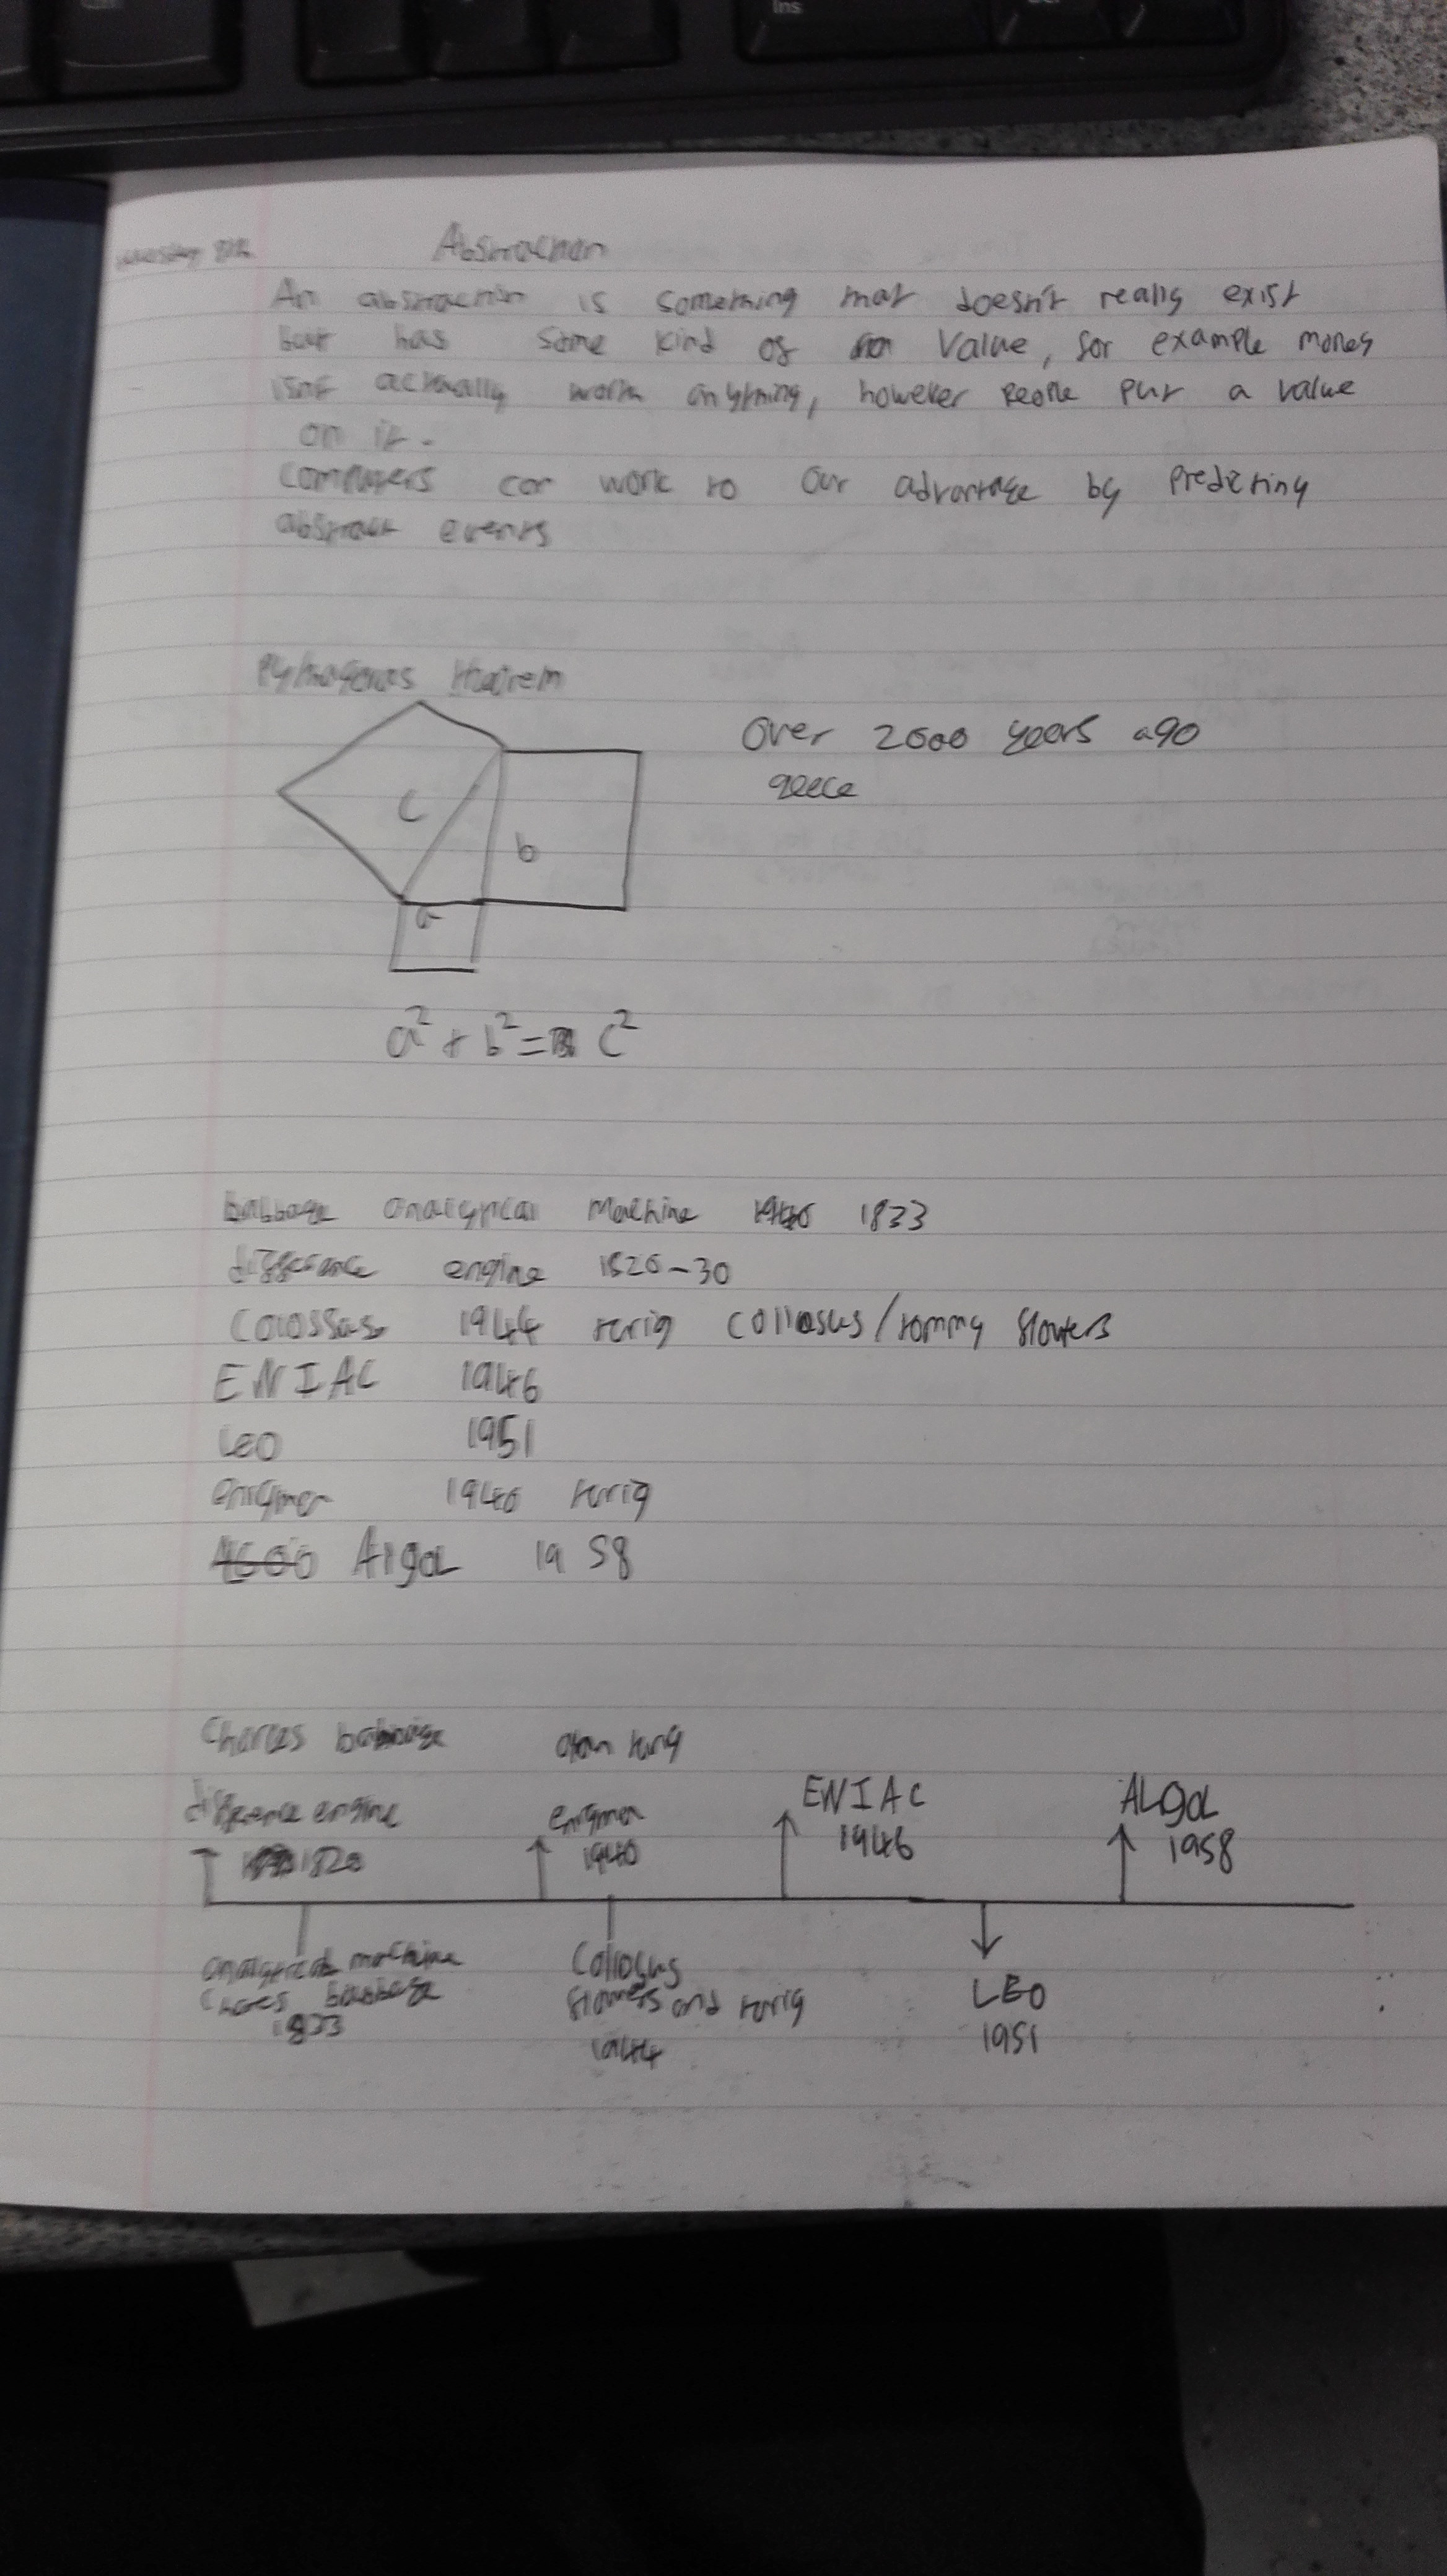 Ins
Abstraction
An abstraction is something that doesn't really exist
but has some kind of value, for example money
isnt actually worth anything, however people put a value
on it.
computers can work to our advantage by predicting
abstract events
Pythagoras
over 2000 years ago
greece
c
b
a
a² + b² = c²
babbage analytical machine 1833
difference engine 1820-30
Colossus 1944 turig collosus/tommy flowers
ENIAC 1946
LEO 1951
enigma 1940 turig
Algol 1958
Charles babbage alan turig
difference engine enigma ENIAC ALgOL
1820 1940 1946 1958
analytical machine Collosus
Charles babbage flowers and turig LEO
1833 1944 1951